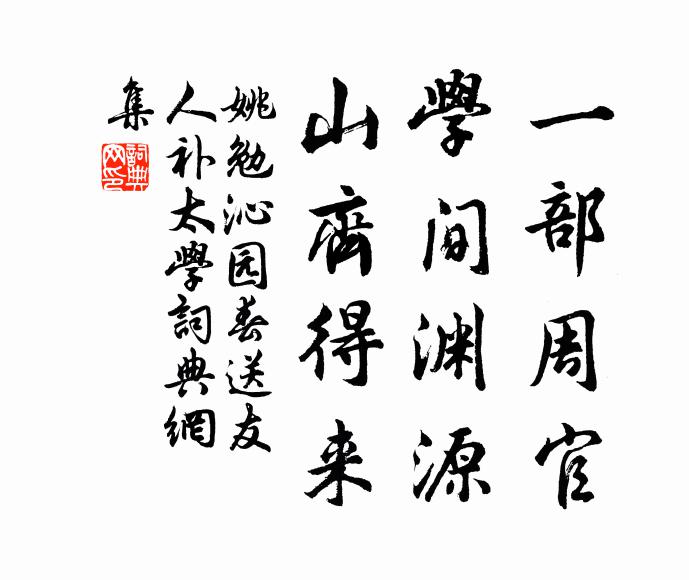 一部周官
學间渊源
山齊得来
姚勉沁园春送友
人补太學詞典網
集
詞典网印